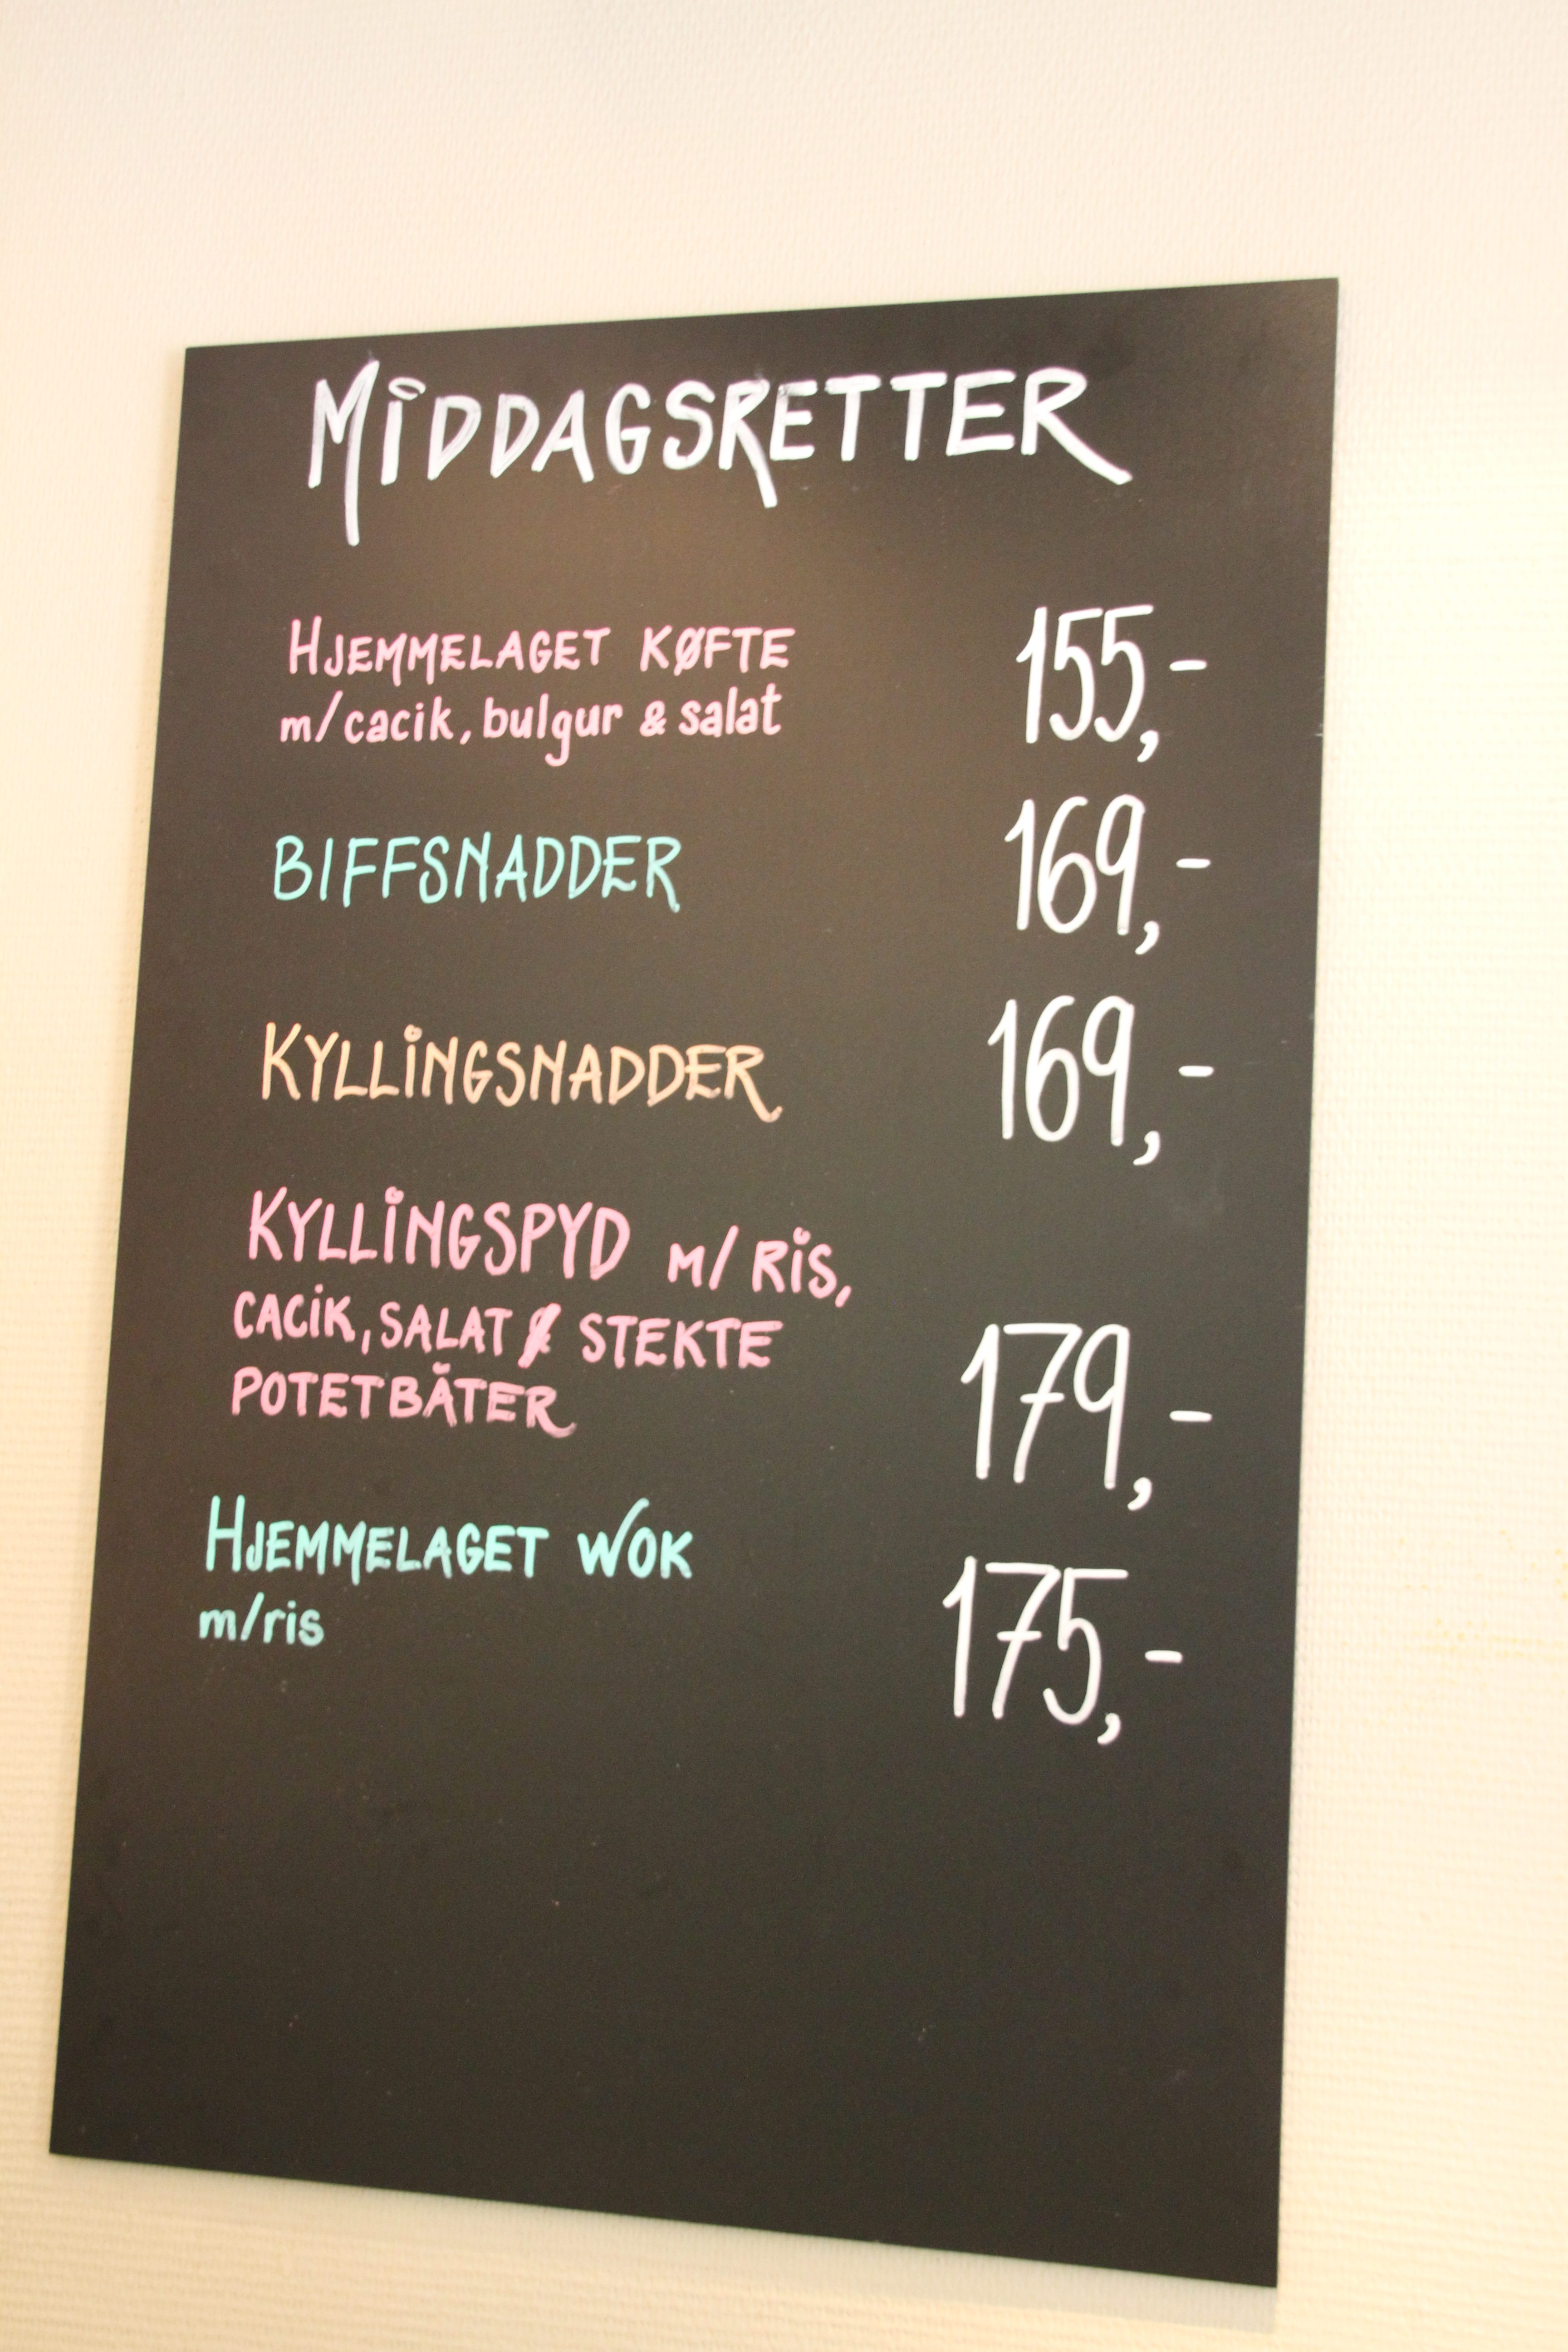 MIDDAGSRETTER
HJEMMELAGET KØFTE
m/cacik, bulgur & salat 155,-
BIFFSNADDER 169,-
KYLLINGSNADDER 169,-
KYLLINGSPYD M/ RIS,
CACIK, SALAT & STEKTE
POTETBÅTER 179,-
HJEMMELAGET WOK
m/ris 175,-